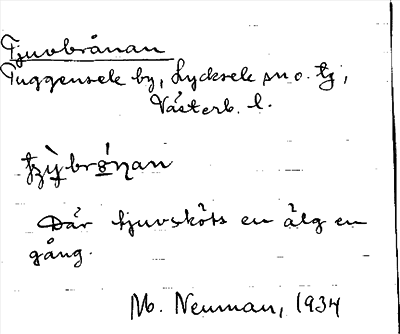 Tjuvbrånan
Tuggensele by, Lycksele sn o. tg,
Västerb. l.
Där tjuvsköts en älg en
gång.
M. Neuman, 1934